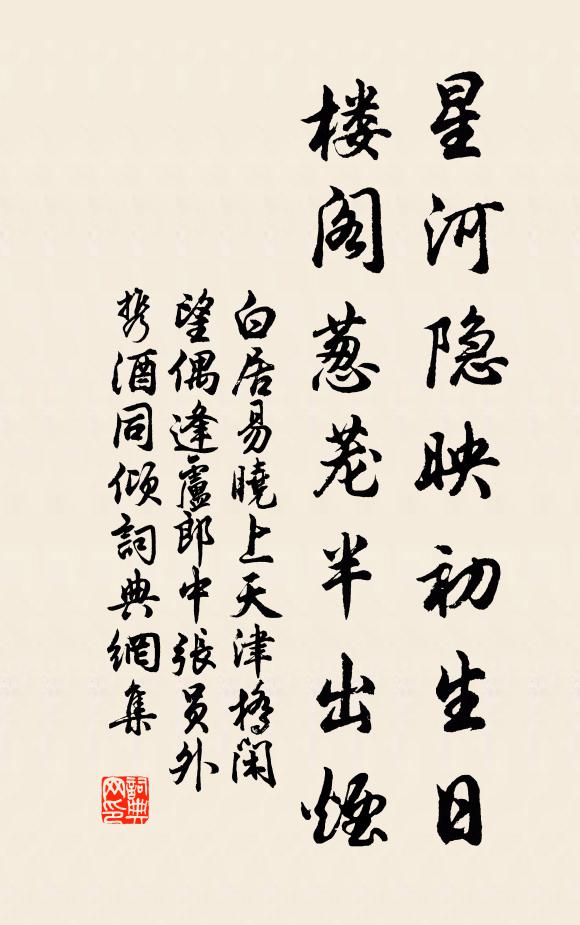 星河隐映初生日
楼阁葱茏半出煙
白居易曉上天津橋闲
望偶逢盧郎中張员外
携酒同倾詞典網集
詞典
网印